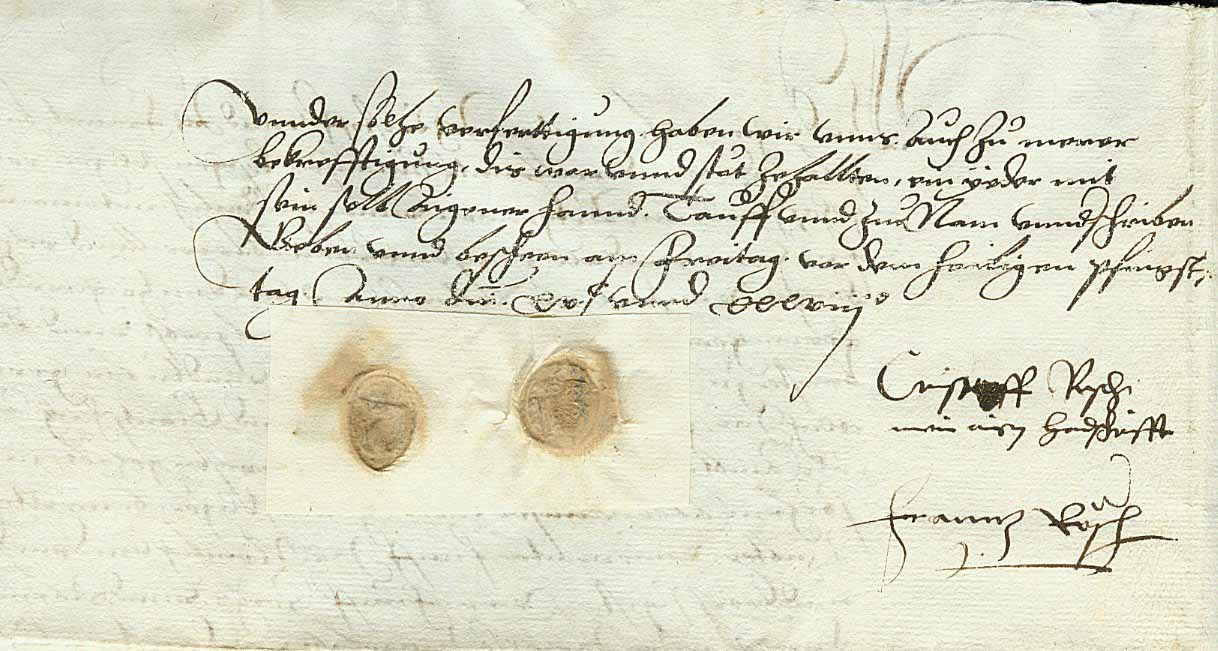 vnnder solche verferttigung haben wir vnns auch zu merer
bekrefftigung, dis war vnnd stät zehallten, ein yeder mit
sein selb Aigener hannd. Tauff vnnd Zue Nam vnndschriben
Geben vnnd beschehen am Freitag vor dem heiligen pfingst-
tag. Anno vnnd
Cristoff Rösch
mein aigen handschrifft
Franntz Rösch